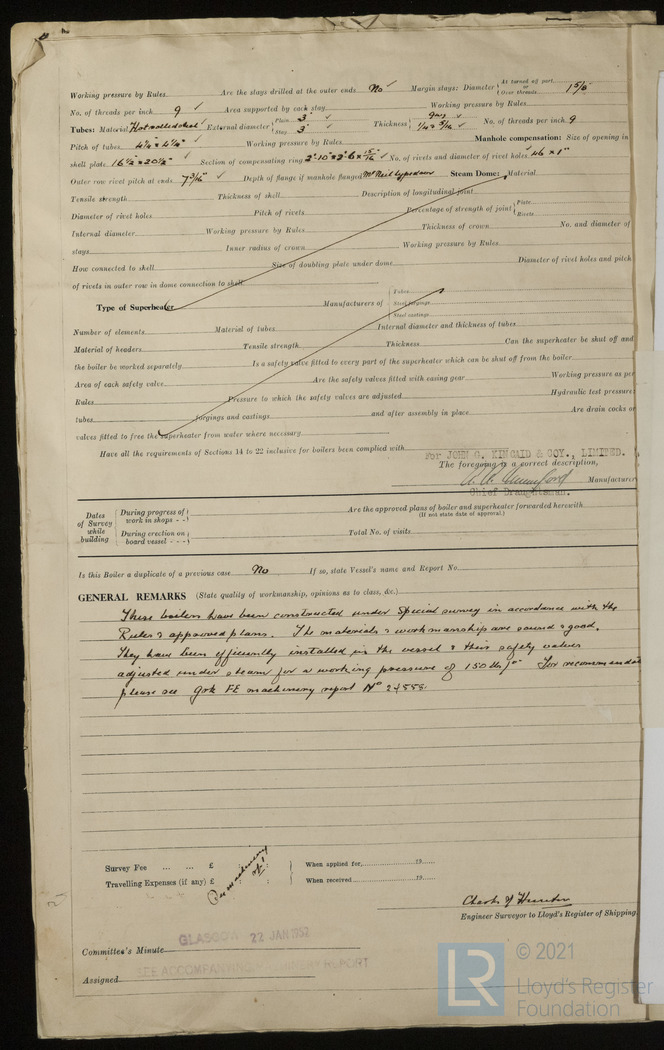 Working pressure by Rules Are the stays drilled at the outer ends No Margin stays: Diameter { At turned off part or Over threads 1 5/8"
No. of threads per inch 9 Area supported by each stay Working pressure by Rules
Tubes: Material Hot rolled steel External diameter { Plain 3" Stay 3" Thickness { 9 wg 1/4" & 5/16 No. of threads per inch 9
Pitch of tubes 4 1/4" x 4 1/4" Working pressure by Rules Manhole compensation: Size of opening in
shell plate 16 1/2" x 20 1/2" Section of compensating ring No. of rivets and diameter of rivet holes 46 x 1"
Outer row rivet pitch at ends 7 3/16" Depth of flange if manhole flanged McNeil type door Steam Dome: Material
Tensile strength Thickness of shell Description of longitudinal joint
Diameter of rivet holes Pitch of rivets Percentage of strength of joint { Plate Rivets
Internal diameter Working pressure by Rules Thickness of crown No. and diameter of
stays Inner radius of crown Working pressure by Rules
How connected to shell Size of doubling plate under dome Diameter of rivet holes and pitch
of rivets in outer row in dome connection to shell
Type of Superheater Manufacturers of { Tubes Steel forgings Steel castings
Number of elements Material of tubes Internal diameter and thickness of tubes
Material of headers Tensile strength Thickness Can the superheater be shut off and
the boiler be worked separately Is a safety valve fitted to every part of the superheater which can be shut off from the boiler
Area of each safety valve Are the safety valves fitted with easing gear Working pressure as per
Rules Pressure to which the safety valves are adjusted Hydraulic test pressure:
tubes forgings and castings and after assembly in place Are drain cocks or
valves fitted to free the superheater from water where necessary
Have all the requirements of Sections 14 to 22 inclusive for boilers been complied with
For JOHN G. KINCAID & COY., LIMITED.
The foregoing is a correct description,
Manufacturer
Chief Draughtsman.
Dates of Survey while building { During progress of work in shops - - Are the approved plans of boiler and superheater forwarded herewith
(If not state date of approval.)
During erection on board vessel - - - Total No. of visits
Is this Boiler a duplicate of a previous case No If so, state Vessel's name and Report No.
GENERAL REMARKS (State quality of workmanship, opinions as to class, &c.)
These boilers have been constructed under Special survey in accordance with the
Rules & approved plans. The materials & workmanship are sound & good.
They have been efficiently installed in the vessel & their safety valves
adjusted under steam for a working pressure of 150 lbs For recommendat
please see Grk FE machinery report No 24558.
Survey Fee ... ... £ : : } When applied for, 19
Travelling Expenses (if any) £ : : When received 19
On machinery rpt
Engineer Surveyor to Lloyd's Register of Shipping.
GLASGOW 22 JAN 1952
Committee's Minute
SEE ACCOMPANYING MACHINERY REPORT
Assigned
LR
© 2021
Lloyd's Register
Foundation